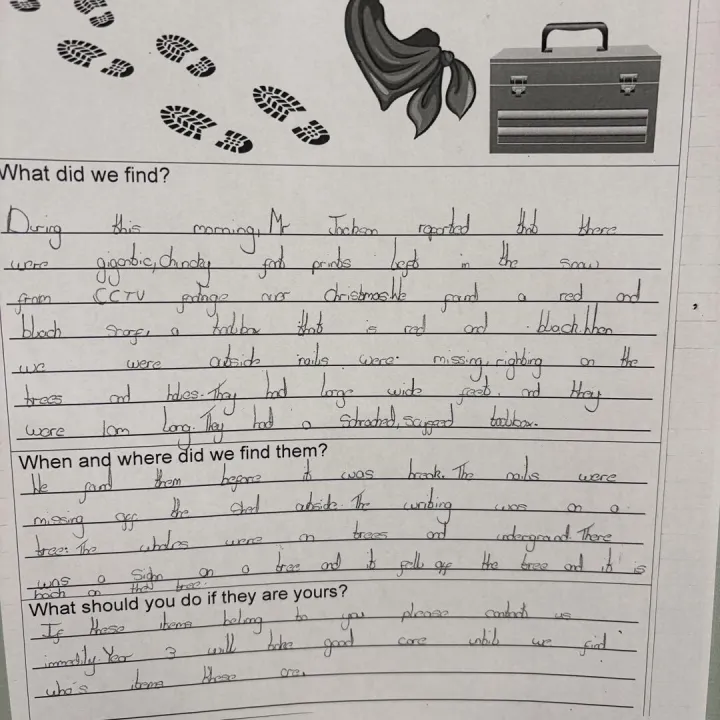 What did we find?
During this morning, Mr Jackson reported that there
were gigantic, chuncky foot prints left in the snow
from CCTV footage over Christmas. We found a red and
black scarf, a toolbox that is red and black. When
we were outside nails were missing, righting on the
trees and holes. They had large wide feet. and they
were 1cm long. They had a Schrached, toolbox.
When and where did we find them?
We fond them before it was break. The nails were
missing off the shed outside. The writing was on a
tree. The wholes were on trees and underground. There
was a sign on a tree and its fell off the tree and it is
back on the tree.
What should you do if they are yours?
If these items belong to you please contact us
immeditly. Year 3 will take good care until we find
who's items these are.